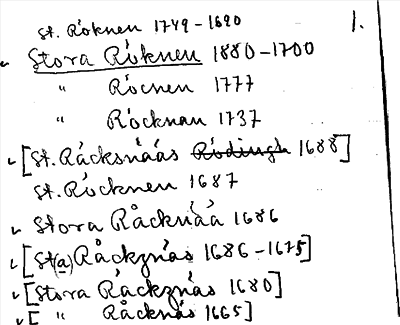 St. Röknen 1749-1690 1.
Stora Röknen 1880-1700
" Röcnen 1777
" Röcknan 1737
[St. Räcksnääs Rödingh 1688]
St. Röcknen 1687
Stora Råcknäå 1686
[St(a) Råckznäs 1686-1675]
[Stora Råckznäs 1680]
[ " Råcknäs 1665]